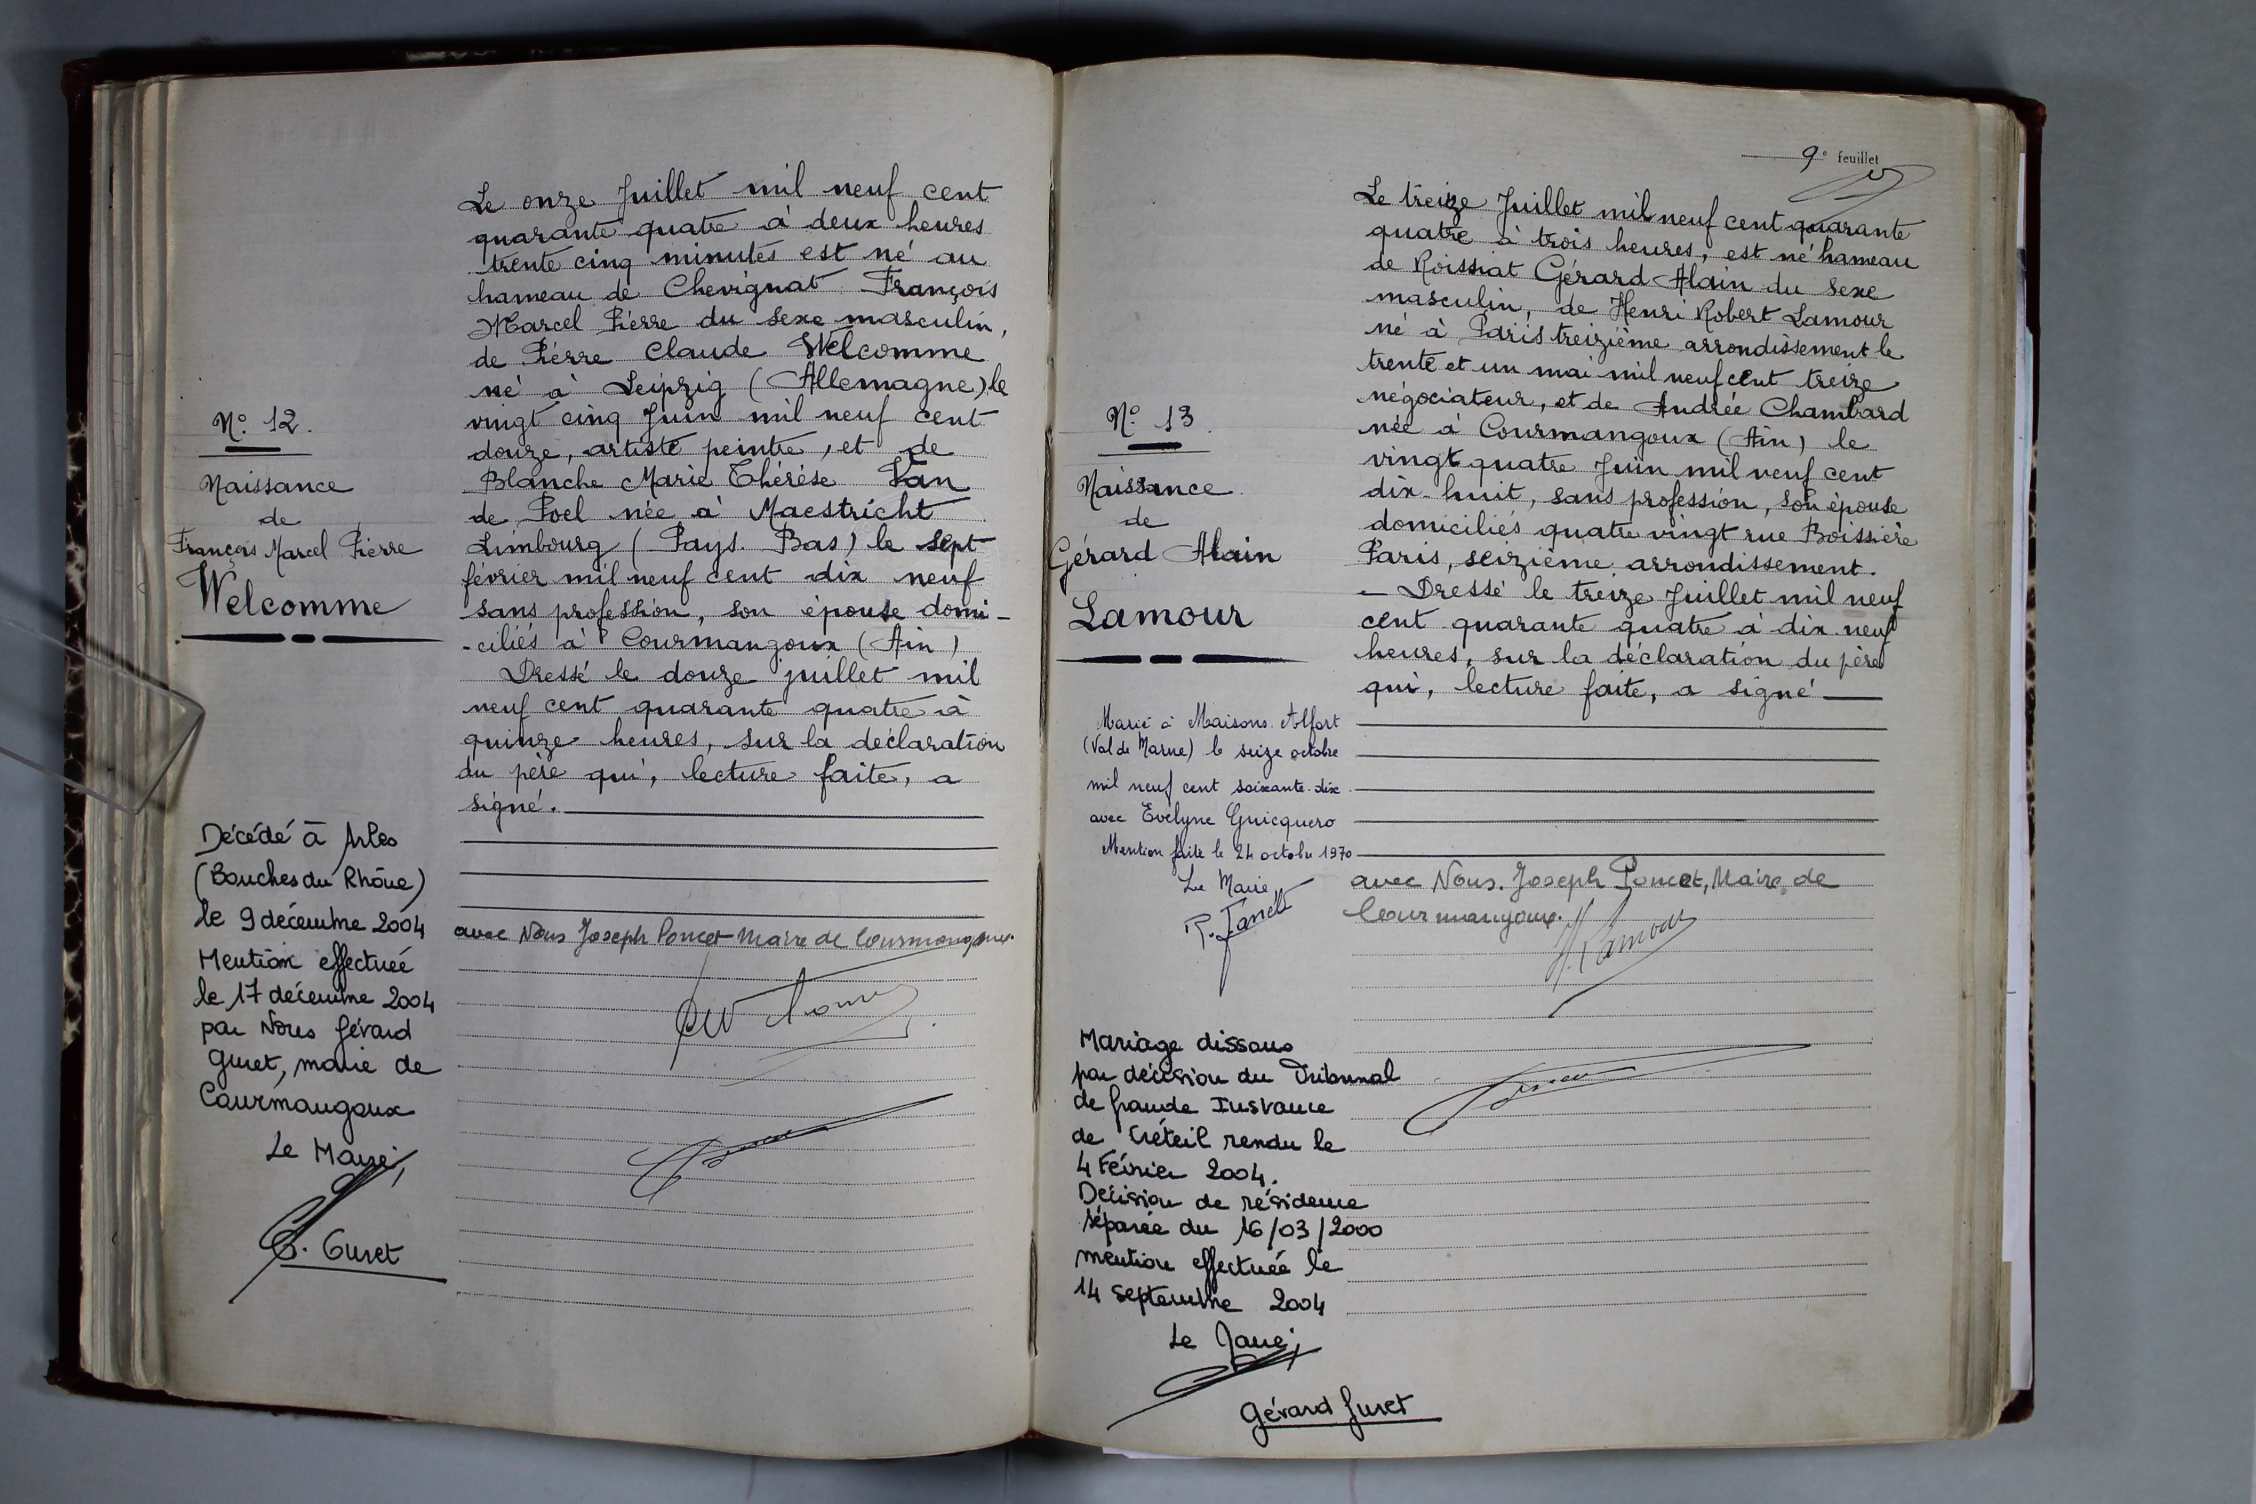 Le onze Juillet mil neuf cent
quarante quatre à deux heures
trente cinq minutes est né au
hameau de Chevignat François
Marcel Pierre du sexe masculin,
de Pierre Claude Welcomme
né à Leipzig (Allemagne) le
vingt cinq Juin mil neuf cent
douze, artiste peintre, et de
Blanche Marie Thérèse Van
de Poel née à Maestricht
Limbourg (Pays. Bas) le sept
février mil neuf cent dix neuf
sans profession, son épouse domi-
-ciliés à Courmangoux (Ain)
Dressé le douze juillet mil
neuf cent quarante quatre à
quinze heures, sur la déclaration
du père qui, lecture faite, a
signé.
avec Nous Joseph Poncet Maire de Courmangoux.
N° 12.
Naissance
de
François Marcel Pierre
Welcomme
Décédé à Arles
(Bouches du Rhône)
le 9 décembre 2004
Mention effectuée
le 17 décembre 2004
par Nous Gérard
Guret, maire de
Courmangoux
Le Maire,
G. Guret
9e feuillet
Le treize Juillet mil neuf cent quarante
quatre à trois heures, est né hameau
de Roissiat Gérard Alain du sexe
masculin, de Henri Robert Lamour
né à Paris treizième arrondissement le
trente et un mai mil neuf cent treize
négociateur, et de Andrée Chambard
née à Courmangoux (Ain) le
vingt quatre Juin mil neuf cent
dix-huit, sans profession, son épouse
domiciliés quatre vingt rue Boissière
Paris, seizième arrondissement.
— Dressé le treize Juillet mil neuf
cent quarante quatre à dix neuf
heures, sur la déclaration du père
qui, lecture faite, a signé
avec Nous. Joseph Poncet, Maire de
Courmangoux.
H. Lamour
N° 13.
Naissance
de
Gérard Alain
Lamour
Marié à Maisons. Alfort
(Val de Marne) le seize octobre
mil neuf cent soixante-dix
avec Evelyne Guicquero
Mention faite le 24 octobre 1970
Le Maire
Mariage dissous
par décision du Tribunal
de Grande Instance
de Créteil rendu le
4 Février 2004.
Décision de résidence
séparée du 16/03/2000
mention effectuée le
14 septembre 2004
Le Maire,
Gérard Guret